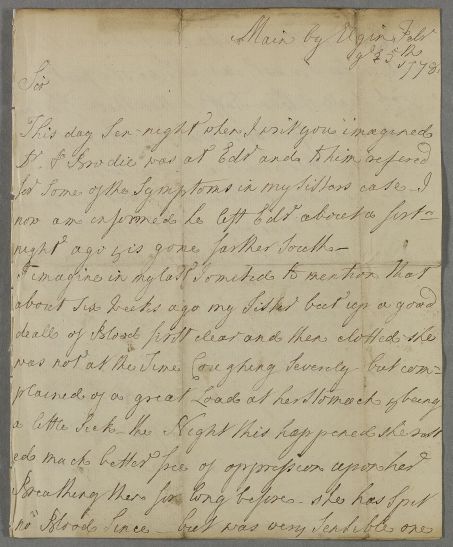 Main by Elgin Febr
ye 25th
1778
Sir
This day Sen-night when I writ you imagined
Dr Brodie was at Edr and to him refered
for Some of the Symptoms in my Sisters case - I
now am informed he left Edr about a fort=
night ago & is gone farther South -
I imagine in my last I omited to mention that
about Six Weeks ago my Sister boct up a good
deall of Blood first clear and then clotted she
was not at the Time Coughing Severely but com=
plained of a great Load at her Stomach & being
a little Sick - the Night this happened she rest
ed much better free of oppression upon her
Breathing then for long before - she has Spit
no Blood Since - but was very Sensible one